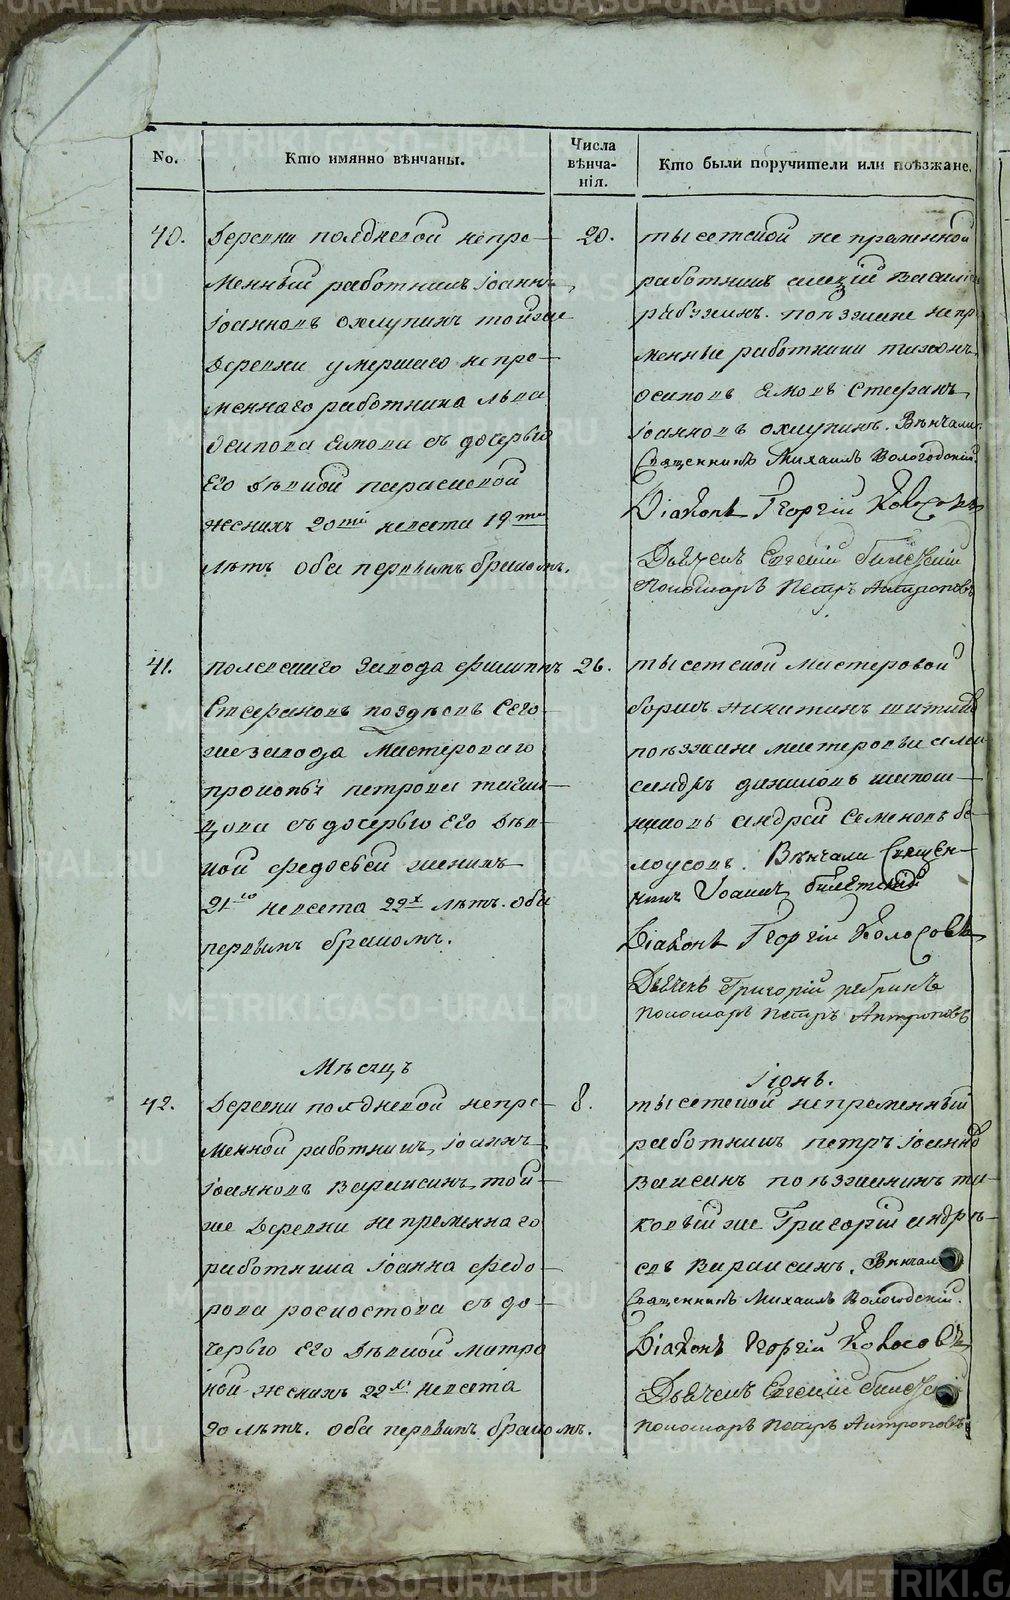 No.
Кто имянно вѣнчаны.
Числа
вѣнча-
нія.
Кто были поручители или поѣзжане.
40.
Деревни полдневой непре-
менный работникъ Iоаннъ
Iоанновъ охлупинъ тойже
Деревни умершаго непре-
меннаго работника льва
Осипова Емова съ дочерью
Его Дѣвкой параскевой
жениху 20ти невеста 19ти
лѣтъ оба первымъ бракомъ.
20.
тысетской непременной
работникъ алекѣй Васил
рябухинъ. поѣзжане непр
менные работники тихонъ
осиповъ Емовъ Стефанъ
Iоанновъ охлупинъ. Вѣнчали
Священникъ Михаилъ Вологодскій.
Діаконъ Георгій Колосовъ
Дьячекъ Евгеній
Пономарь Петръ Антроповъ
41.
полевскаго завода филипъ
Стефановъ поздѣевъ Сего
же завода Мастероваго
прокопья петрова
съ дочерью Его Дѣв
кой федосьей жениху
21го невеста 22х лѣтъ. оба
первымъ бракомъ.
26.
тысетской мастеровой
борисъ никитинъ
поезжане мастеровыи алек
сандръ даниловъ шапош-
никовъ андрей Семеновъ бе-
лоусовъ. Вѣнчали Священ-
никъ Iоаннъ
Діаконъ Георгій Колосовъ
Дьячекъ Григорій
пономарь петръ Антроповъ
Мѣсяцъ
Iюнь.
42.
Деревни полдневой непре-
менной работникъ Iоаннъ
Iоанновъ Вараксинъ той-
же Деревни непременнаго
работника Iоанна федо-
рова роскостова съ до-
черью Его Дѣвкой матро
ной жениху 22х невеста
20 лѣтъ. оба первымъ бракомъ.
8.
тысетской непременный
работникъ петръ Iоанно
Ваксинъ поѣзжанинъ та-
ковый же Григорій андрѣ-
евъ Вараксинъ. Вѣнчал
Священникъ Михаилъ Вологодскій.
Діаконъ Георгій Колосовъ
Дьячекъ Евгеній
пономарь Петръ Антроповъ
METRIKI.GASO-URAL.RU